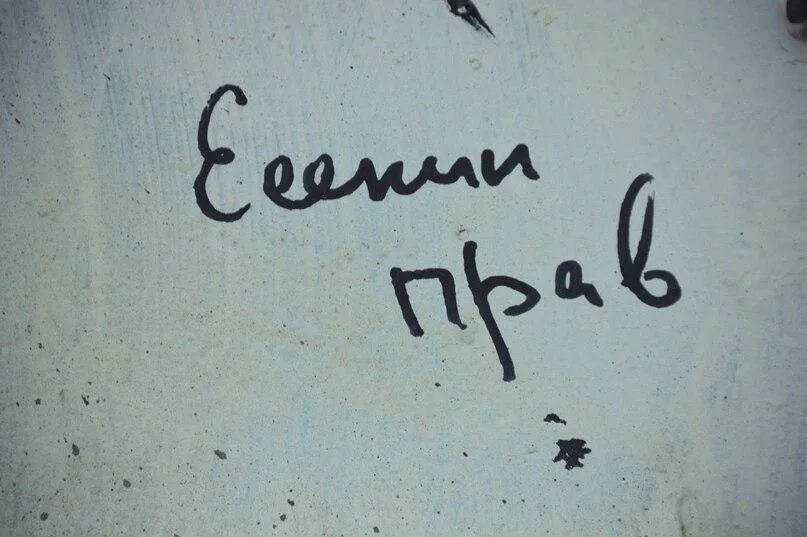 Есенин
прав